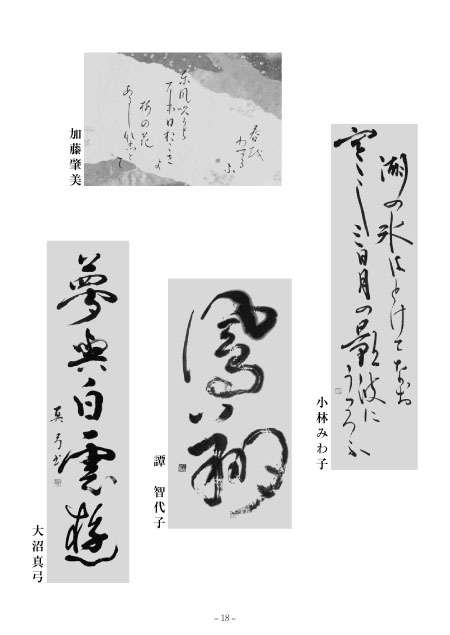 湖の氷はとけてなお
寒し三日月の影波に
うつろふ
小林みわ子
東風吹かば
にほひおこせよ
梅の花
あるじなしとて
春な
わすれ
そ
加藤肇美
鳳翔
譚 智代子
夢與白雲遊
真弓書
大沼真弓
– 18 –